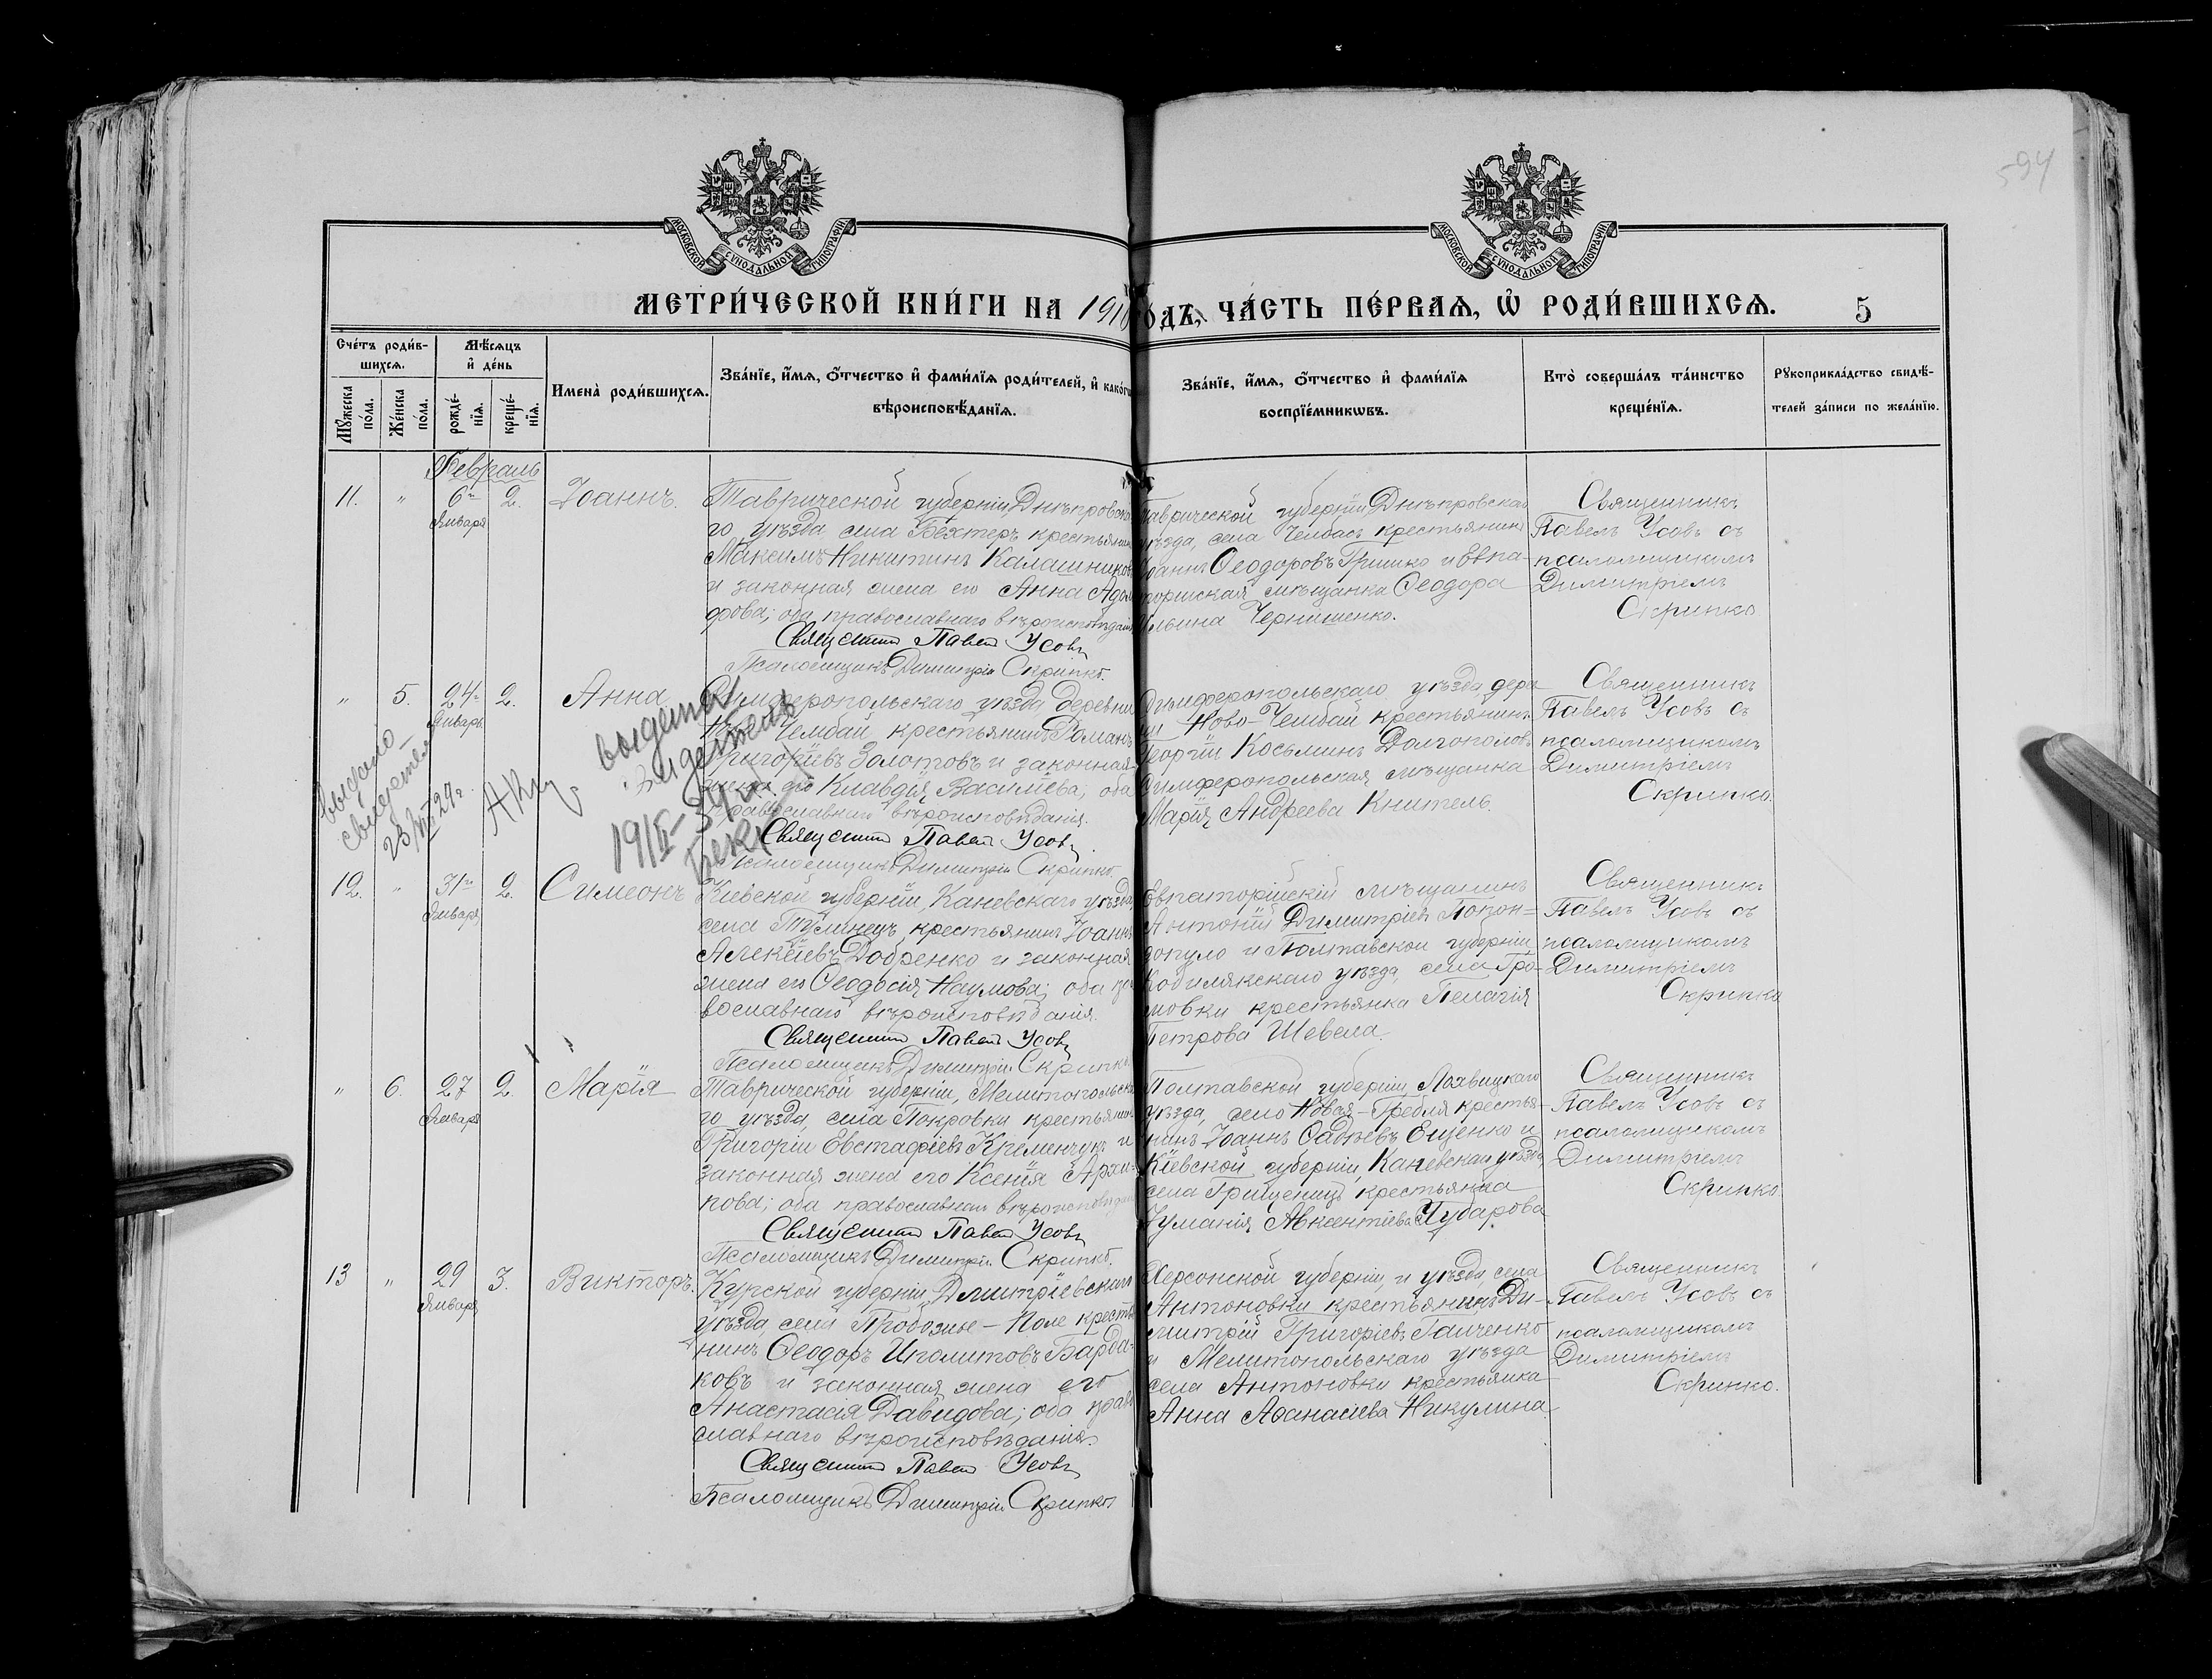 594
МОСКОВСКОЙ СУНОДАЛЬНОЙ ТИПОГРАФІИ
МОСКОВСКОЙ СУНОДАЛЬНОЙ ТИПОГРАФІИ
МЕТРИ́ЧЕСКОЙ КНИ́ГИ НА 1910 ГОДЪ, ЧА́СТЬ ПЕ́РВАѦ, Ѡ РОДИ́ВШИХСѦ.
5
Сче́тъ роди́в-
шихсѧ.
Мꙋ́жеска по́ла.
Же́нска по́ла.
Мѣ́сѧцъ и҆ де́нь
рожде́-
нїѧ.
креще́-
нїѧ.
Имена̀ роди́вшихсѧ.
Зва́нїе, и҆́мѧ, ѻ҆́тчество и҆ фами́лїѧ роди́телей, и҆ како́гѡ
вѣроисповѣ́данїѧ.
Зва́нїе, и҆́мѧ, ѻ҆́тчество и҆ фами́лїѧ
воспрїе́мникѡвъ.
Кто̀ соверша́лъ та́инство
креще́нїѧ.
Рꙋкоприкла́дство свидѣ́-
телей за́писи по жела́нїю.
Февраль
11. " 6го Января 2. Іоаннъ.
Таврической губерніи Днѣпровска-
го уѣзда села Бехтеръ крестьянинъ
Максимъ Никитинъ Калашниковъ
и законная жена его Анна
фова; оба православнаго вѣроисповѣданія
Священникъ Павелъ Усовъ
Псаломщикъ Димитрій Скрипко.
Таврической губерніи Днѣпровскаго
уѣзда, села Чембасъ крестьянинъ
Іоаннъ Ѳеодоровъ Гришко и Евпа-
торійская мѣщанка Ѳеодора
Ильина Чернишенко.
Священникъ
Павелъ Усовъ съ
псаломщикомъ
Димитріемъ
Скрипко
" 5. 24го Января 2. Анна
Симферопольскаго уѣзда деревни
Ново-Чембай крестьянинъ Романъ
Григоріевъ Золотовъ и законная
жена его Клавдія Василіева; оба
православнаго вѣроисповѣданія.
Священникъ Павелъ Усовъ
Псаломщикъ Димитрій Скрипко.
Симферопольскаго уѣзда дерев-
ни Ново-Чембай крестьянинъ
Георгій Косьминъ Долгополовъ
Симферопольская мѣщанка
Марія Андреева Книтель.
Священникъ
Павелъ Усовъ съ
псаломщикомъ
Димитріемъ
Скрипко.
выдано
свидетел
23/VII 29г.
выдета
12. " 31го Января 2. Симеонъ
Кіевской губерніи, Каневскаго уѣзда,
села Тулинецъ крестьянинъ Іоаннъ
Алексіевъ Добренко и законная
жена его Ѳеодосія Наумова; оба пра-
вославнаго вѣроисповѣданія.
Священникъ Павелъ Усовъ
Псаломщикъ Димитрій Скрипко
Евпаторійскій мѣщанинъ
Антоній Димитріевъ Попон-
допуло и Полтавской губерніи
Кобилякскаго уѣзда, села Гро-
мовки крестьянка Пелагія
Петрова Шевела.
Священникъ
Павелъ Усовъ съ
псаломщикомъ
Димитріемъ
Скрипко
" 6. 27 Января 2. Марія
Таврической губерніи, Мелитопольска-
го уѣзда, села Покровки крестьянинъ
Григорій Евстафіевъ Кременчукъ и
законная жена его Ксенія Архи-
пова; оба православнаго вѣроисповѣданія
Священникъ Павелъ Усовъ
Псаломщикъ Димитрій Скрипко.
Полтавской губерніи Лохвицкаго
уѣзда, село Новая-Гребля крестья-
нинъ Іоаннъ Ѳадѣевъ Ещенко и
Кіевской губерніи, Каневскаго уѣзда,
села Грищенецъ крестьянка
Авксентіева Чубарова
Священникъ
Павелъ Усовъ съ
псаломщикомъ
Димитріемъ
Скрипко
13 " 29 Января 3. Викторъ.
Курской губерніи Дмитріевскаго
уѣзда, села Пробожье-Поле крестья-
нинъ Ѳеодоръ Иполитовъ Барда-
ковъ и законная жена его
Анастасія Давидова; оба право-
славнаго вѣроисповѣданія.
Священникъ Павелъ Усовъ
Псаломщикъ Димитрій Скрипко
Херсонской губерніи, и уѣзда, села
Антоновки крестьянинъ Ди-
митрій Григоріевъ Галченко
и Мелитопольскаго уѣзда
села Антоновки крестьянка
Анна Аѳанасіева Никулина.
Священникъ
Павелъ Усовъ съ
псаломщикомъ
Димитріемъ
Скрипко.